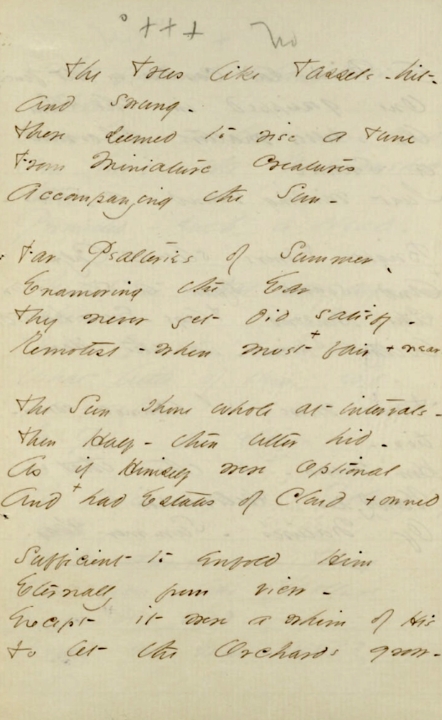 + + + No
The Trees like Tassels - hit -
And swung -
There seemed to rise a Tune
From Miniature Creatures
Accompanying the Sun -
Far Psalteries of Summer
Enamoring the Ear
They never yet did satisfy -
Remotest - when most + fair + near
The Sun shone whole at intervals -
Then Half - then utter hid -
As if Himself were optional
And + had Estates of Cloud + owned
Sufficient to enfold Him
Eternally from view -
Except it were a whim of His
To let the Orchards grow -